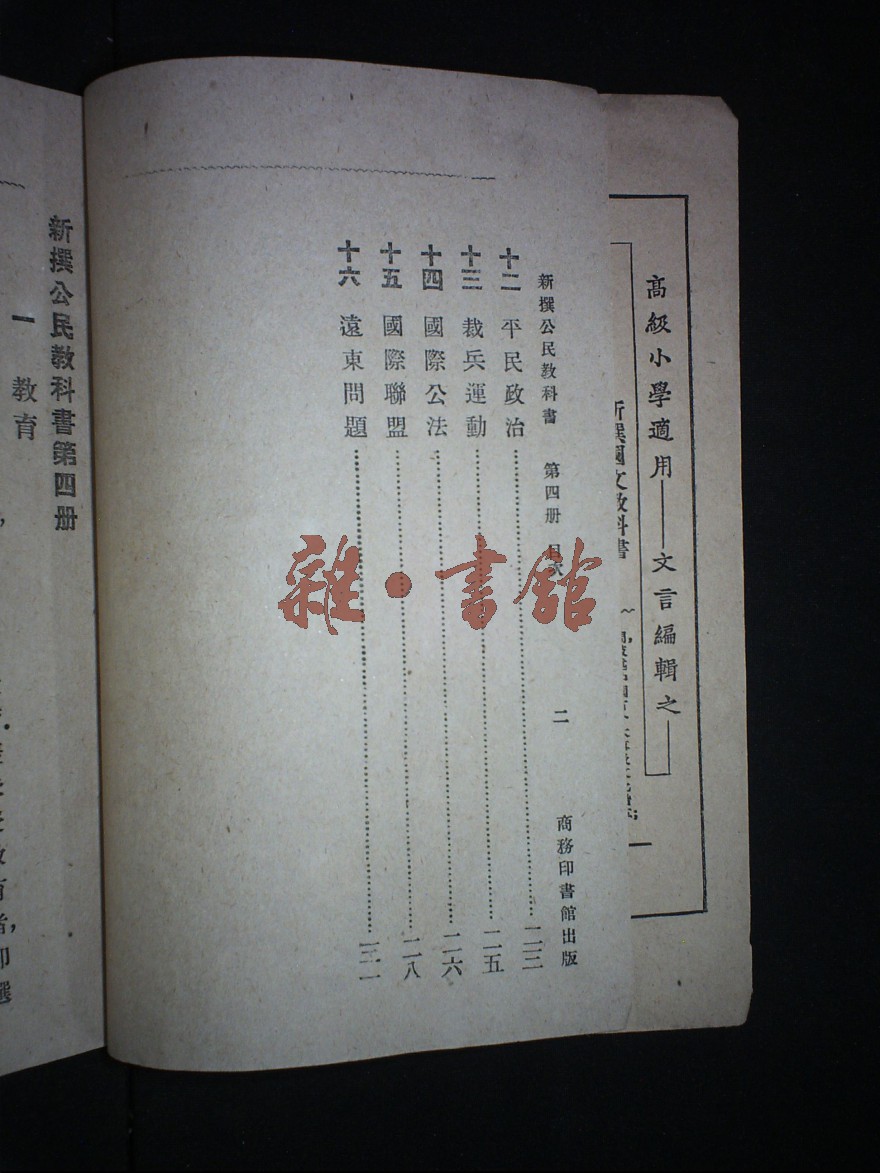 高級小學適用——文言編輯之一
新撰國文教科書
新撰公民教科書 第四册 目次 二 商務印書館出版
十二 平民政治……二三
十三 裁兵運動……二五
十四 國際公法……二六
十五 國際聯盟……二八
十六 遠東問題……三一
新撰公民教科書第四册
一 教育
雜·書館